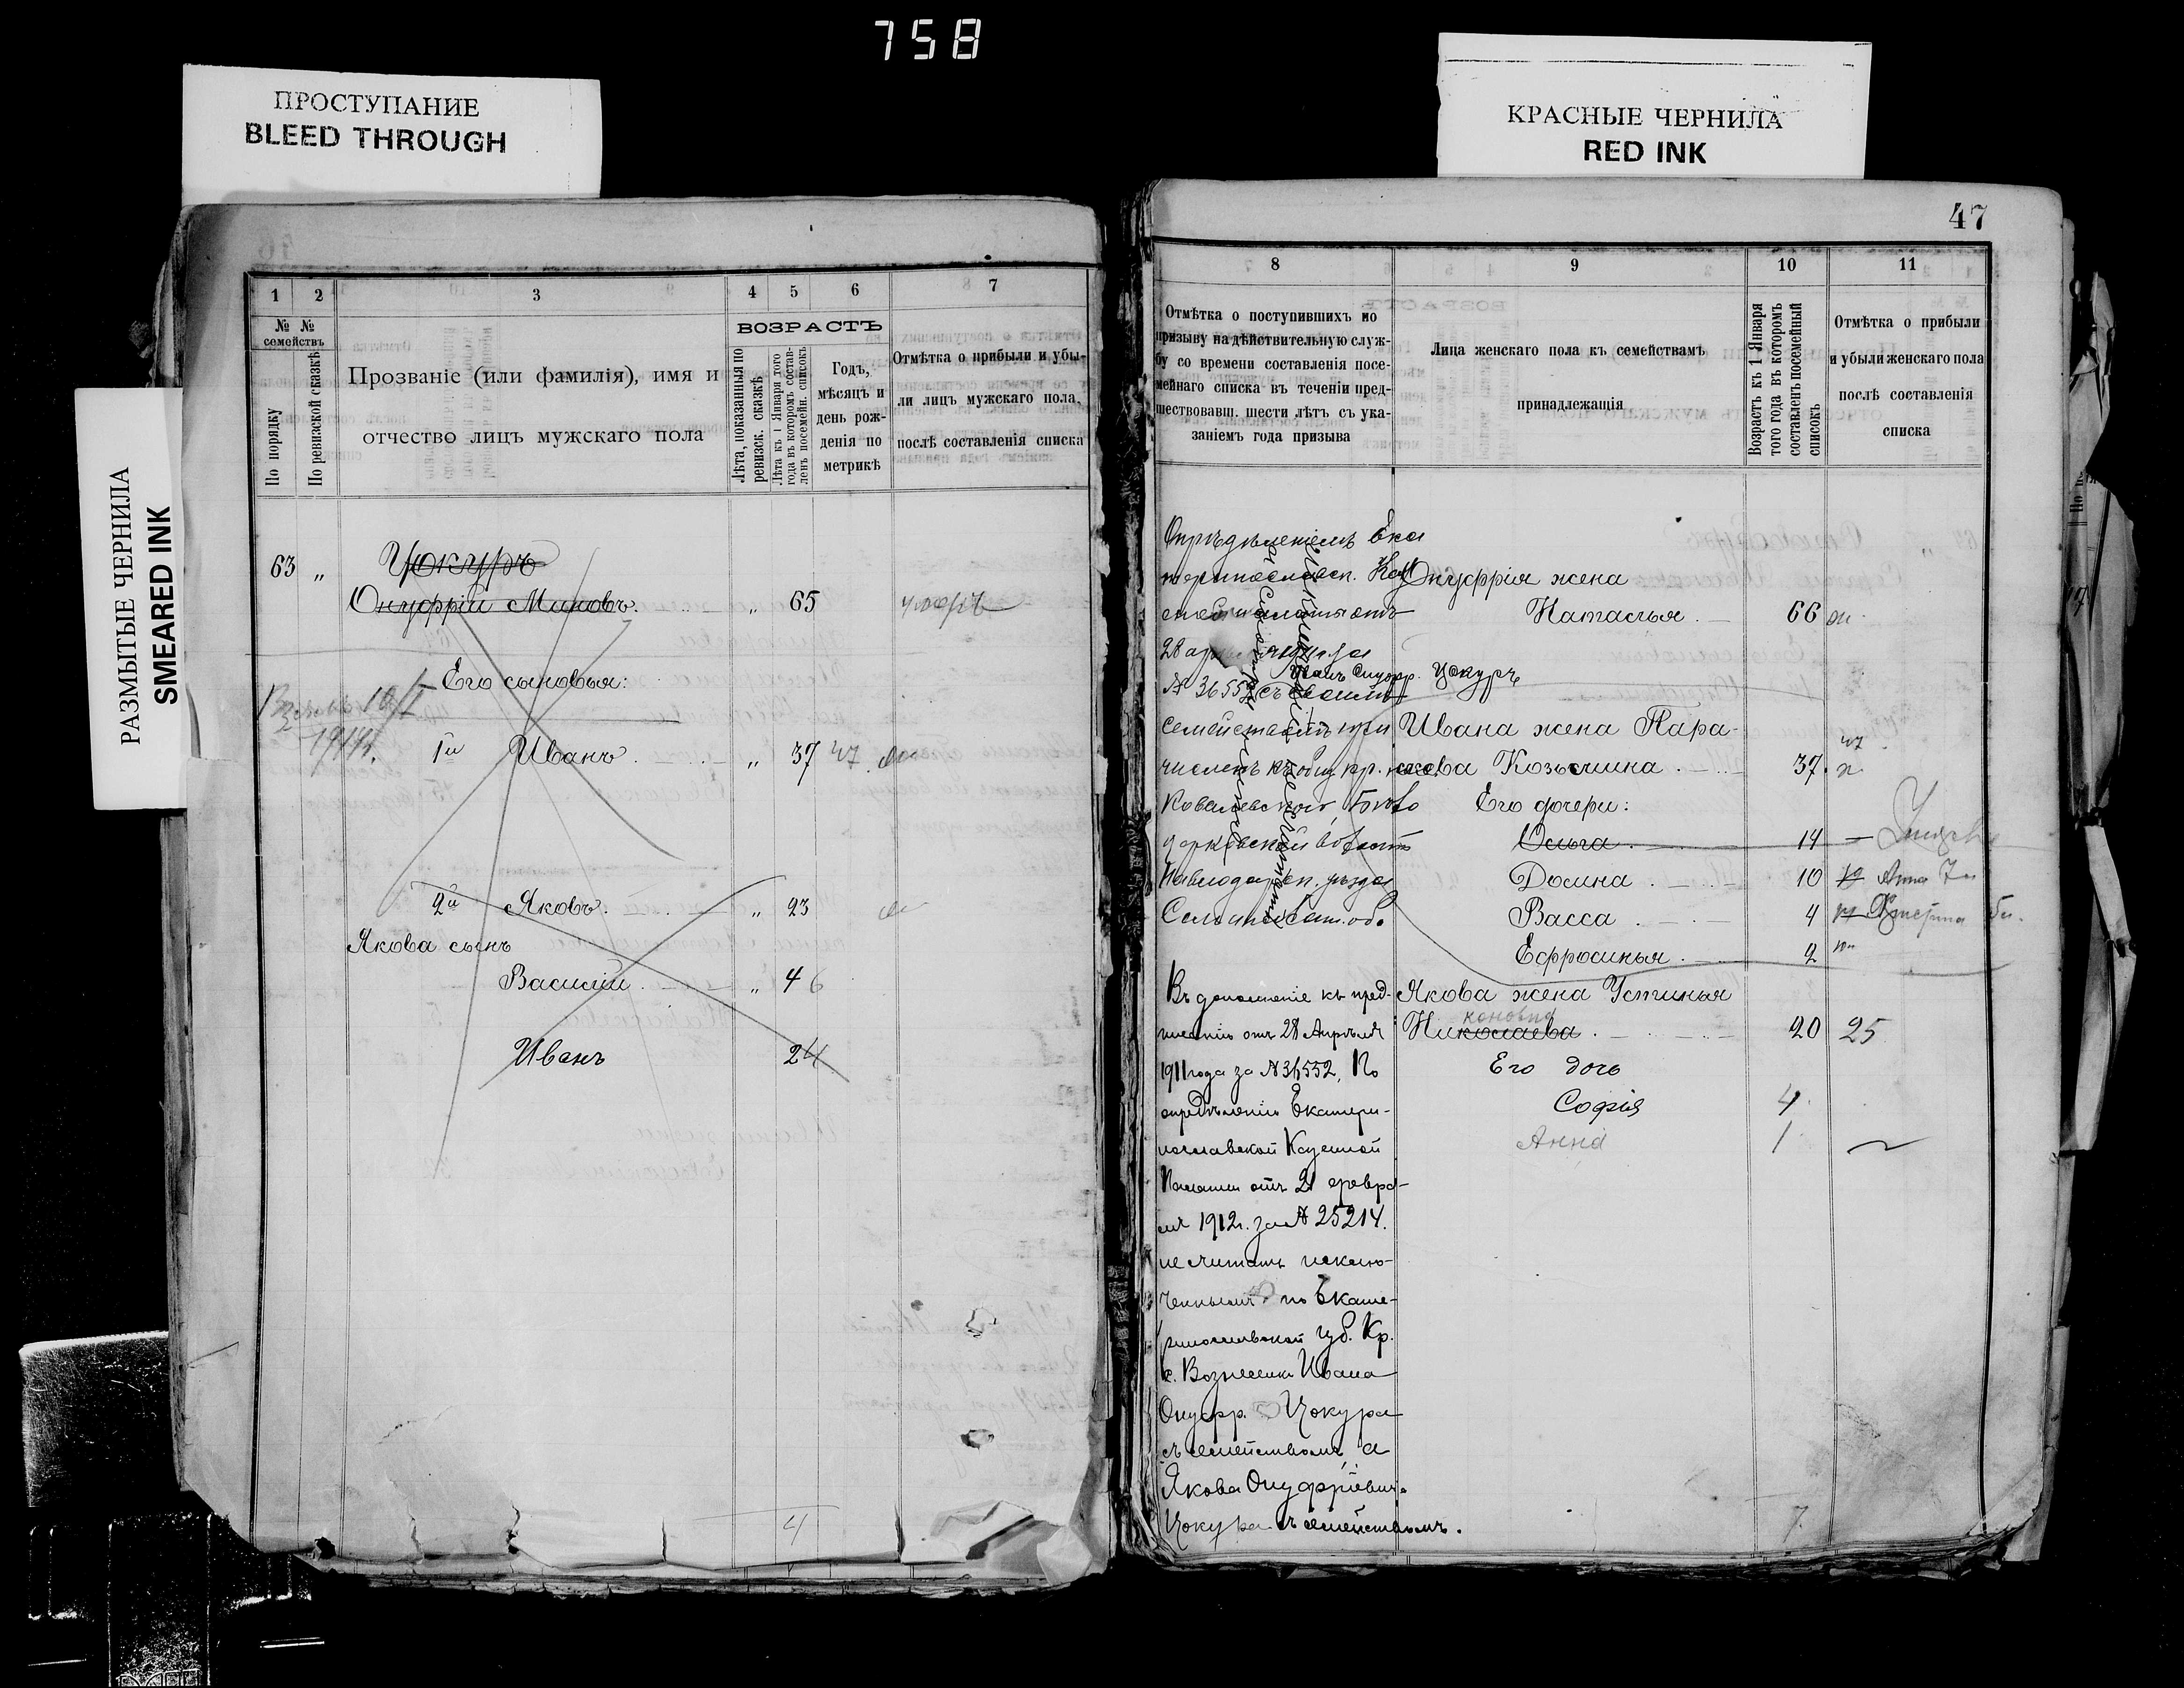 758
ПРОСТУПАНИЕ
BLEED THROUGH
КРАСНЫЕ ЧЕРНИЛА
RED INK
РАЗМЫТЫЕ ЧЕРНИЛА
SMEARED INK
1 2 3 4 5 6 7
№ № семействъ
По порядку
По ревизской сказкѣ
Прозваніе (или фамилія), имя и
отчество лицъ мужскаго пола
ВОЗРАСТЪ
Лѣта, показанныя по
ревизск. сказкѣ
Лѣта къ 1 Января того
года въ которомъ состав-
ленъ посемейн. списокъ
Годъ,
мѣсяцъ и
день рож-
денія по
метрикѣ
Отмѣтка о прибыли и убы-
ли лицъ мужскаго пола,
послѣ составленія списка
63 „ Цокуръ
Онуфрій Миновъ. „ 65 умеръ
Его сыновья:
1914
1й Иванъ. „ 37 47
2й Яковъ. „ 23
Якова сынъ
Василій „ 4 6
Иванъ 24
4
47
8 9 10 11
Отмѣтка о поступившихъ по
призыву на дѣйствительную служ-
бу со времени составленія посе-
мейнаго списка въ теченіи пред-
шествовавш. шести лѣтъ съ ука-
заніемъ года призыва
Лица женскаго пола къ семействамъ
принадлежащія
Возрастъ къ 1 Января
того года въ которомъ
составленъ посемейный
списокъ
Отмѣтка о прибыли
и убыли женскаго пола
послѣ составленія
списка
Опредѣленіемъ Ека
теринославск. Каз
28
№ 36552 съ своимъ
семействомъ при
численъ къ общ. кр.
Павлодарск. уѣзда
Семипалат. об.
Въ дополненіе къ пред-
писанію отъ 28 Апрѣля
1911 года за №36552, По
опредѣленію Екатери-
нославской Казенной
Палаты отъ 21 февра-
ля 1912г. за № 25214.
не считать исклю-
ченнымъ по Екате-
ринославской губ. Кр.
с. Вознесенки Ивана
Онуфр. Цокура
съ семействомъ, а
Якова Онуфріевича
Цокура съ семействомъ.
Онуфрія жена
Наталья. 66
Иванъ Онуфр. Цокуръ
Ивана жена Пара-
скева Козьмина. 37. 47
Его дочери:
Ольга. 14
Домна. 10 Анна 7
Васса 4
Ефросинья. 2
Якова жена Устинья
Николаева 20 25
Его дочь
Софія 4
Анна 1
7